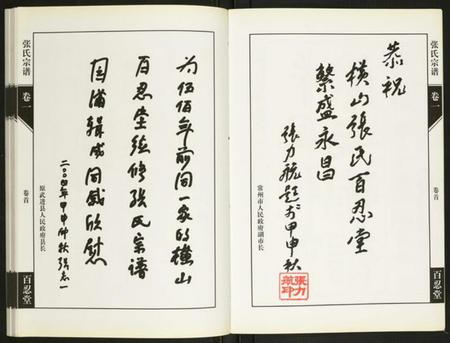 张氏宗谱
卷一
卷首
百忍堂
恭祝
横山張氏百忍堂
繁盛永昌
張力航題於甲申秋
張力航印
常州市人民政府副市长
为伍佰年前同一家的横山
百忍堂续修张氏宗谱
圆满辑成同感欣慰
二〇〇四年甲申仲秋张志一
原武进县人民政府县长
张氏宗谱
卷一
卷首
百忍堂